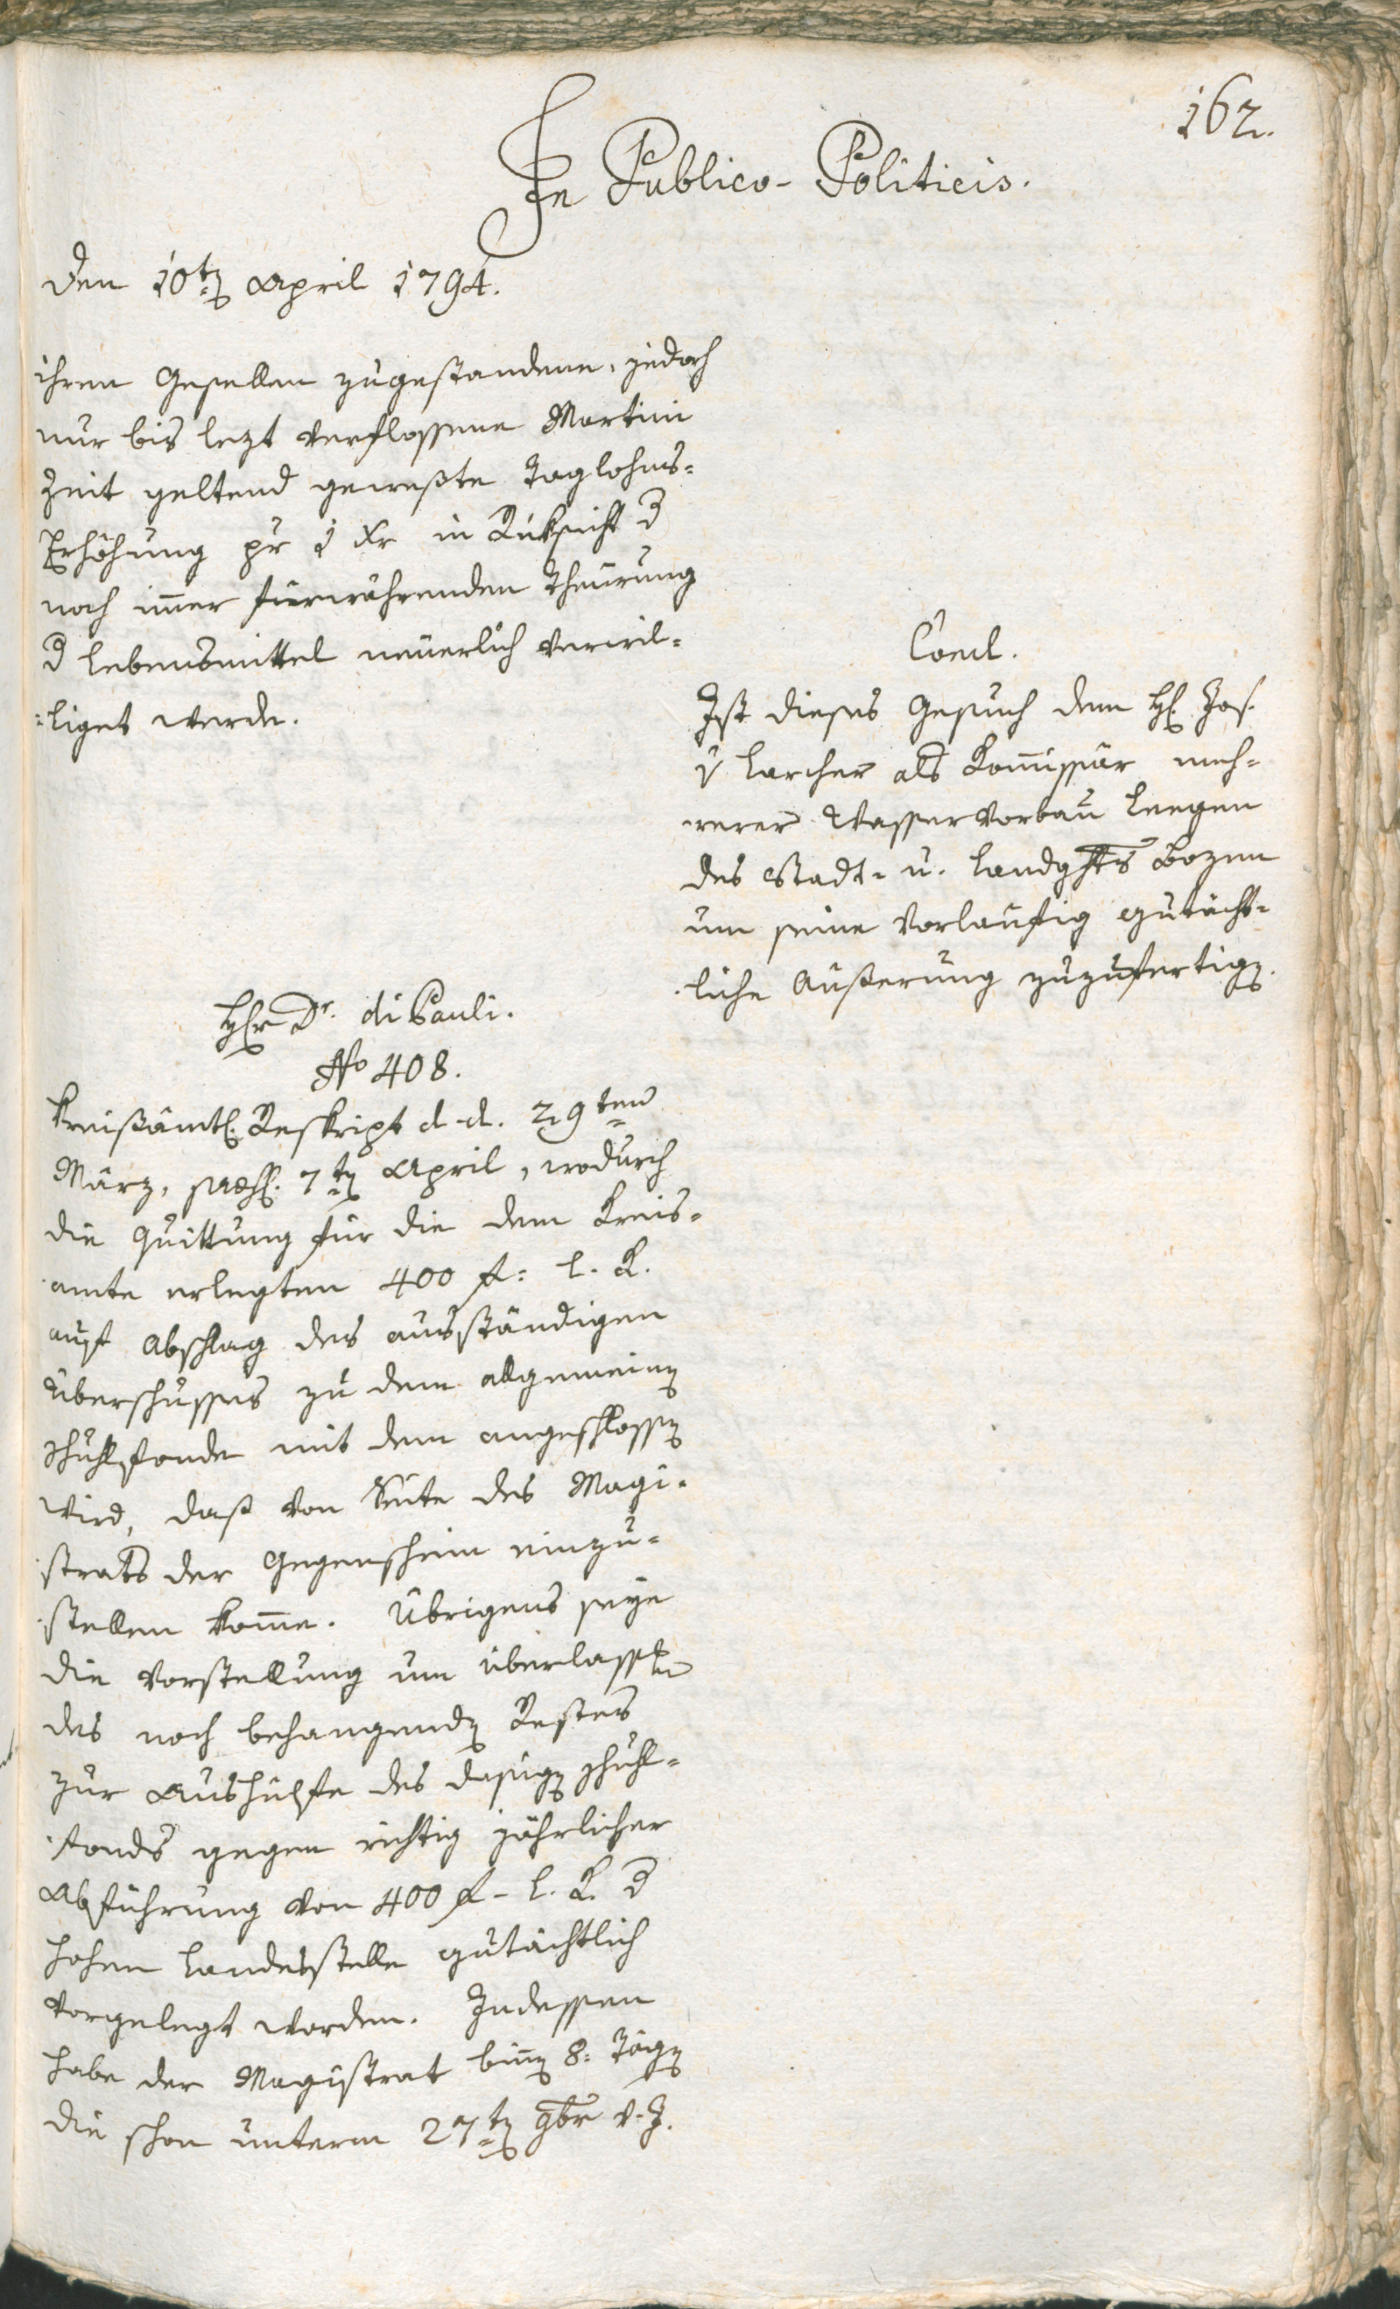 162.
In Publico-Politicis.
den 10t. April 1794.
ihren Gesellen zugestandene, jedoch
nur bis lezt verflossene Martini
Zeit geltend geweßte Taglohns-
Erhöhung pr 3 Xr in Rüksicht d
noch imer fürwährenden Theurung
d Lebensmittel neuerlich verwil-
-liget werde.
Concl.
Ist dieses Gesuch dem H. Jos.
v Larcher als Komissär meh-
rerer Wasser Vorbau Leegen
des Stadt- u. Landghts Bozen
um seine vorlaufig gutächt-
liche Äußerung zuzufertig.
Hr Dr. di Pauli.
No 408.
Kreißämtl. Reskript d. d. 29ten
März, 7t. April, wodurch
die Quittung für die dem Kreis-
amte erlegten 400 f: l. K.
auf Abschlag des ausständigen
Überschusses zu dem allgemein
Schulfonde mit dem angeschlossen
wird, daß von Seite des Magi-
strats der Gegenschein einzu-
stellen kome. Übrigens seye
die Vorstellung um überlassen
des noch behangend Restes
zur Aushülfe des dasig Schul-
fonds gegen richtig jährlicher
Abführung von 400 f- l. K. d
hohen Landesstelle gutächtlich
vorgelegt worden. Indessen
habe der Magistrat bin 8: Täg
die schon unterm 27t. 9br v. J.